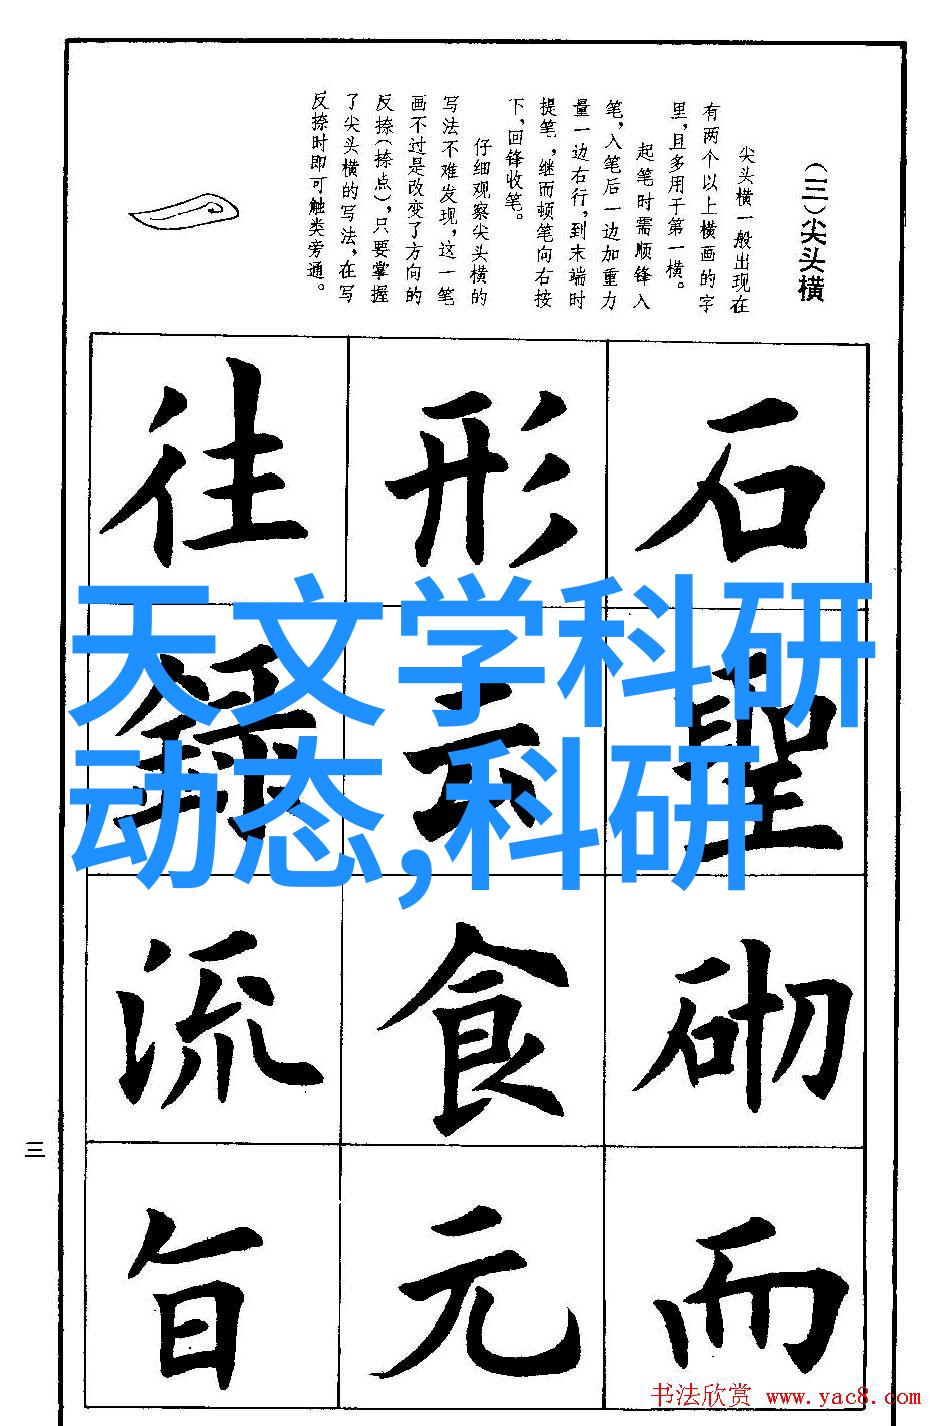 （二）尖头横
尖头横一般出现在
有两个以上横画的字
里，且多用于第一横。
起笔时需顺锋入
笔，入笔后一边加重力
量一边右行，到末端时
提笔，继而顿笔向右按
下，回锋收笔。
仔细观察尖头横的
写法不难发现，这一笔
画不过是改变了方向的
反捺（捺点），只要掌握
了尖头横的写法，在写
反捺时即可触类旁通。
石
聖
砌
而
形
云
食
元
往
流
旨
天文学科研
动态,科研
三
书法欣赏 www.yac8.com